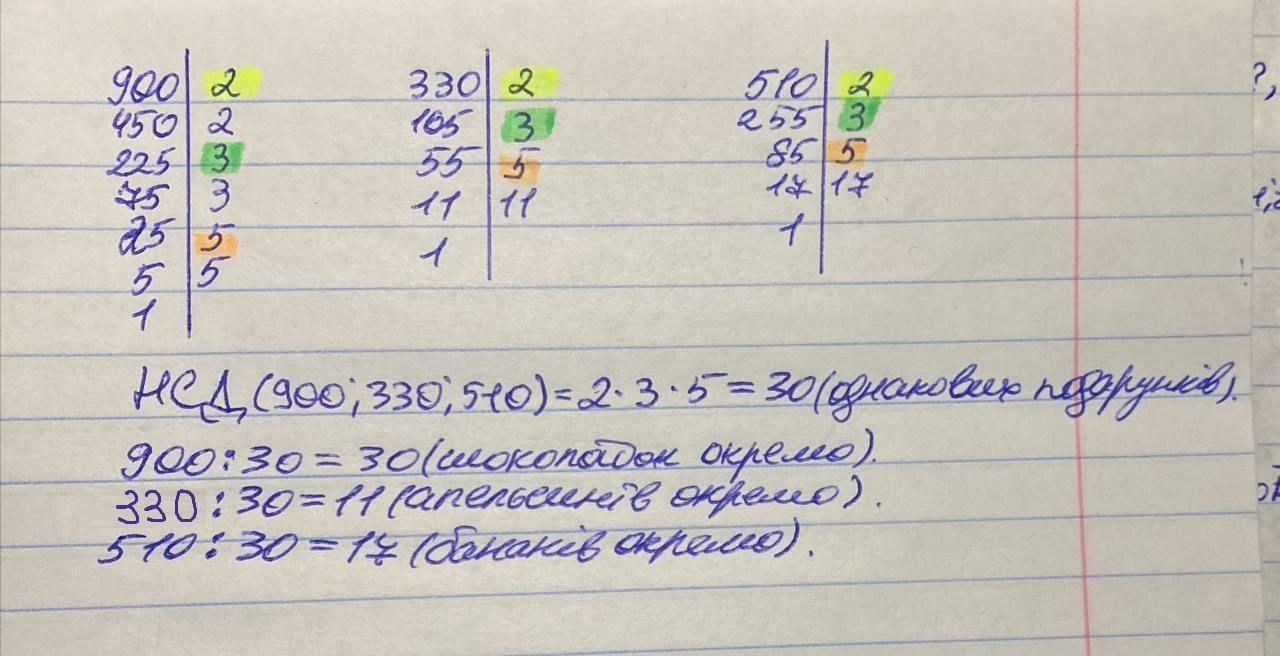 900 | 2 330 | 2 510 | 2
450 | 2 165 | 3 255 | 3
225 | 3 55 | 5 85 | 5
75 | 3 11 | 11 17 | 17
25 | 5 1 | 1 |
5 | 5
1 |
НСД (900; 330; 510) = 2 · 3 · 5 = 30 (однакових подарунків).
900 : 30 = 30 (шоколадок окремо).
330 : 30 = 11 (апельсинів окремо).
510 : 30 = 17 (бананів окремо).